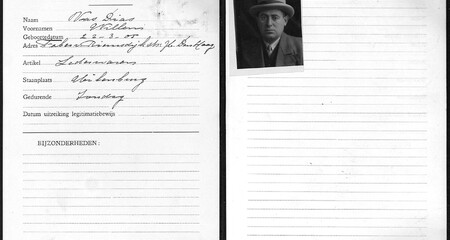 Naam Vas Dias
Voornamen Willem
Geboortedatum 22-3-
Adres Den Haag
Artikel Lederwaren
Staanplaats
Gedurende Zondag
Datum uitreiking legitimatiebewijs
BIJZONDERHEDEN: